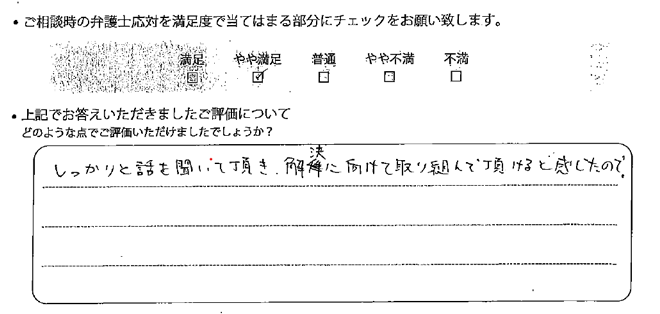 • ご相談時の弁護士応対を満足度で当てはまる部分にチェックをお願い致します。
満足 やや満足 普通 やや不満 不満
□ ☑ □ □ □
• 上記でお答えいただきましたご評価について
どのような点でご評価いただけましたでしょうか？
しっかりと話を聞いて頂き、解決に向けて取り組んで頂けると感じたので。